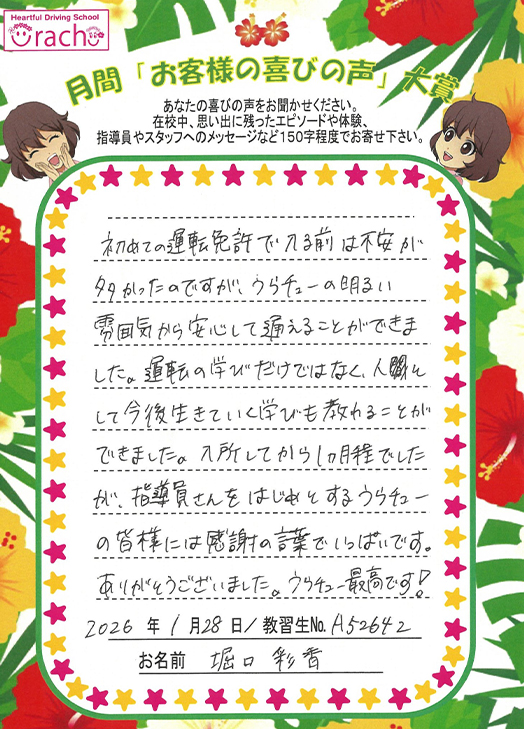 Heartful Driving School
Urachu
月間「お客様の喜びの声」大賞
あなたの喜びの声をお聞かせください。
在校中、思い出に残ったエピソードや体験、
指導員やスタッフへのメッセージなど150字程度でお寄せ下さい。
初めての運転免許で入る前は不安が
多かったのですが、うらチューの明るい
雰囲気から安心して通えることができま
した。運転の学びだけではなく、人間と
して今後生きていく学びも教わることが
できました。入所してから1ヵ月程でした
が、指導員さんをはじめとするうらチュー
の皆様には感謝の言葉でいっぱいです。
ありがとうございました。うらチュー最高です!
2026 年 1 月 28 日/教習生No. A52642
お名前 堀口 彩香